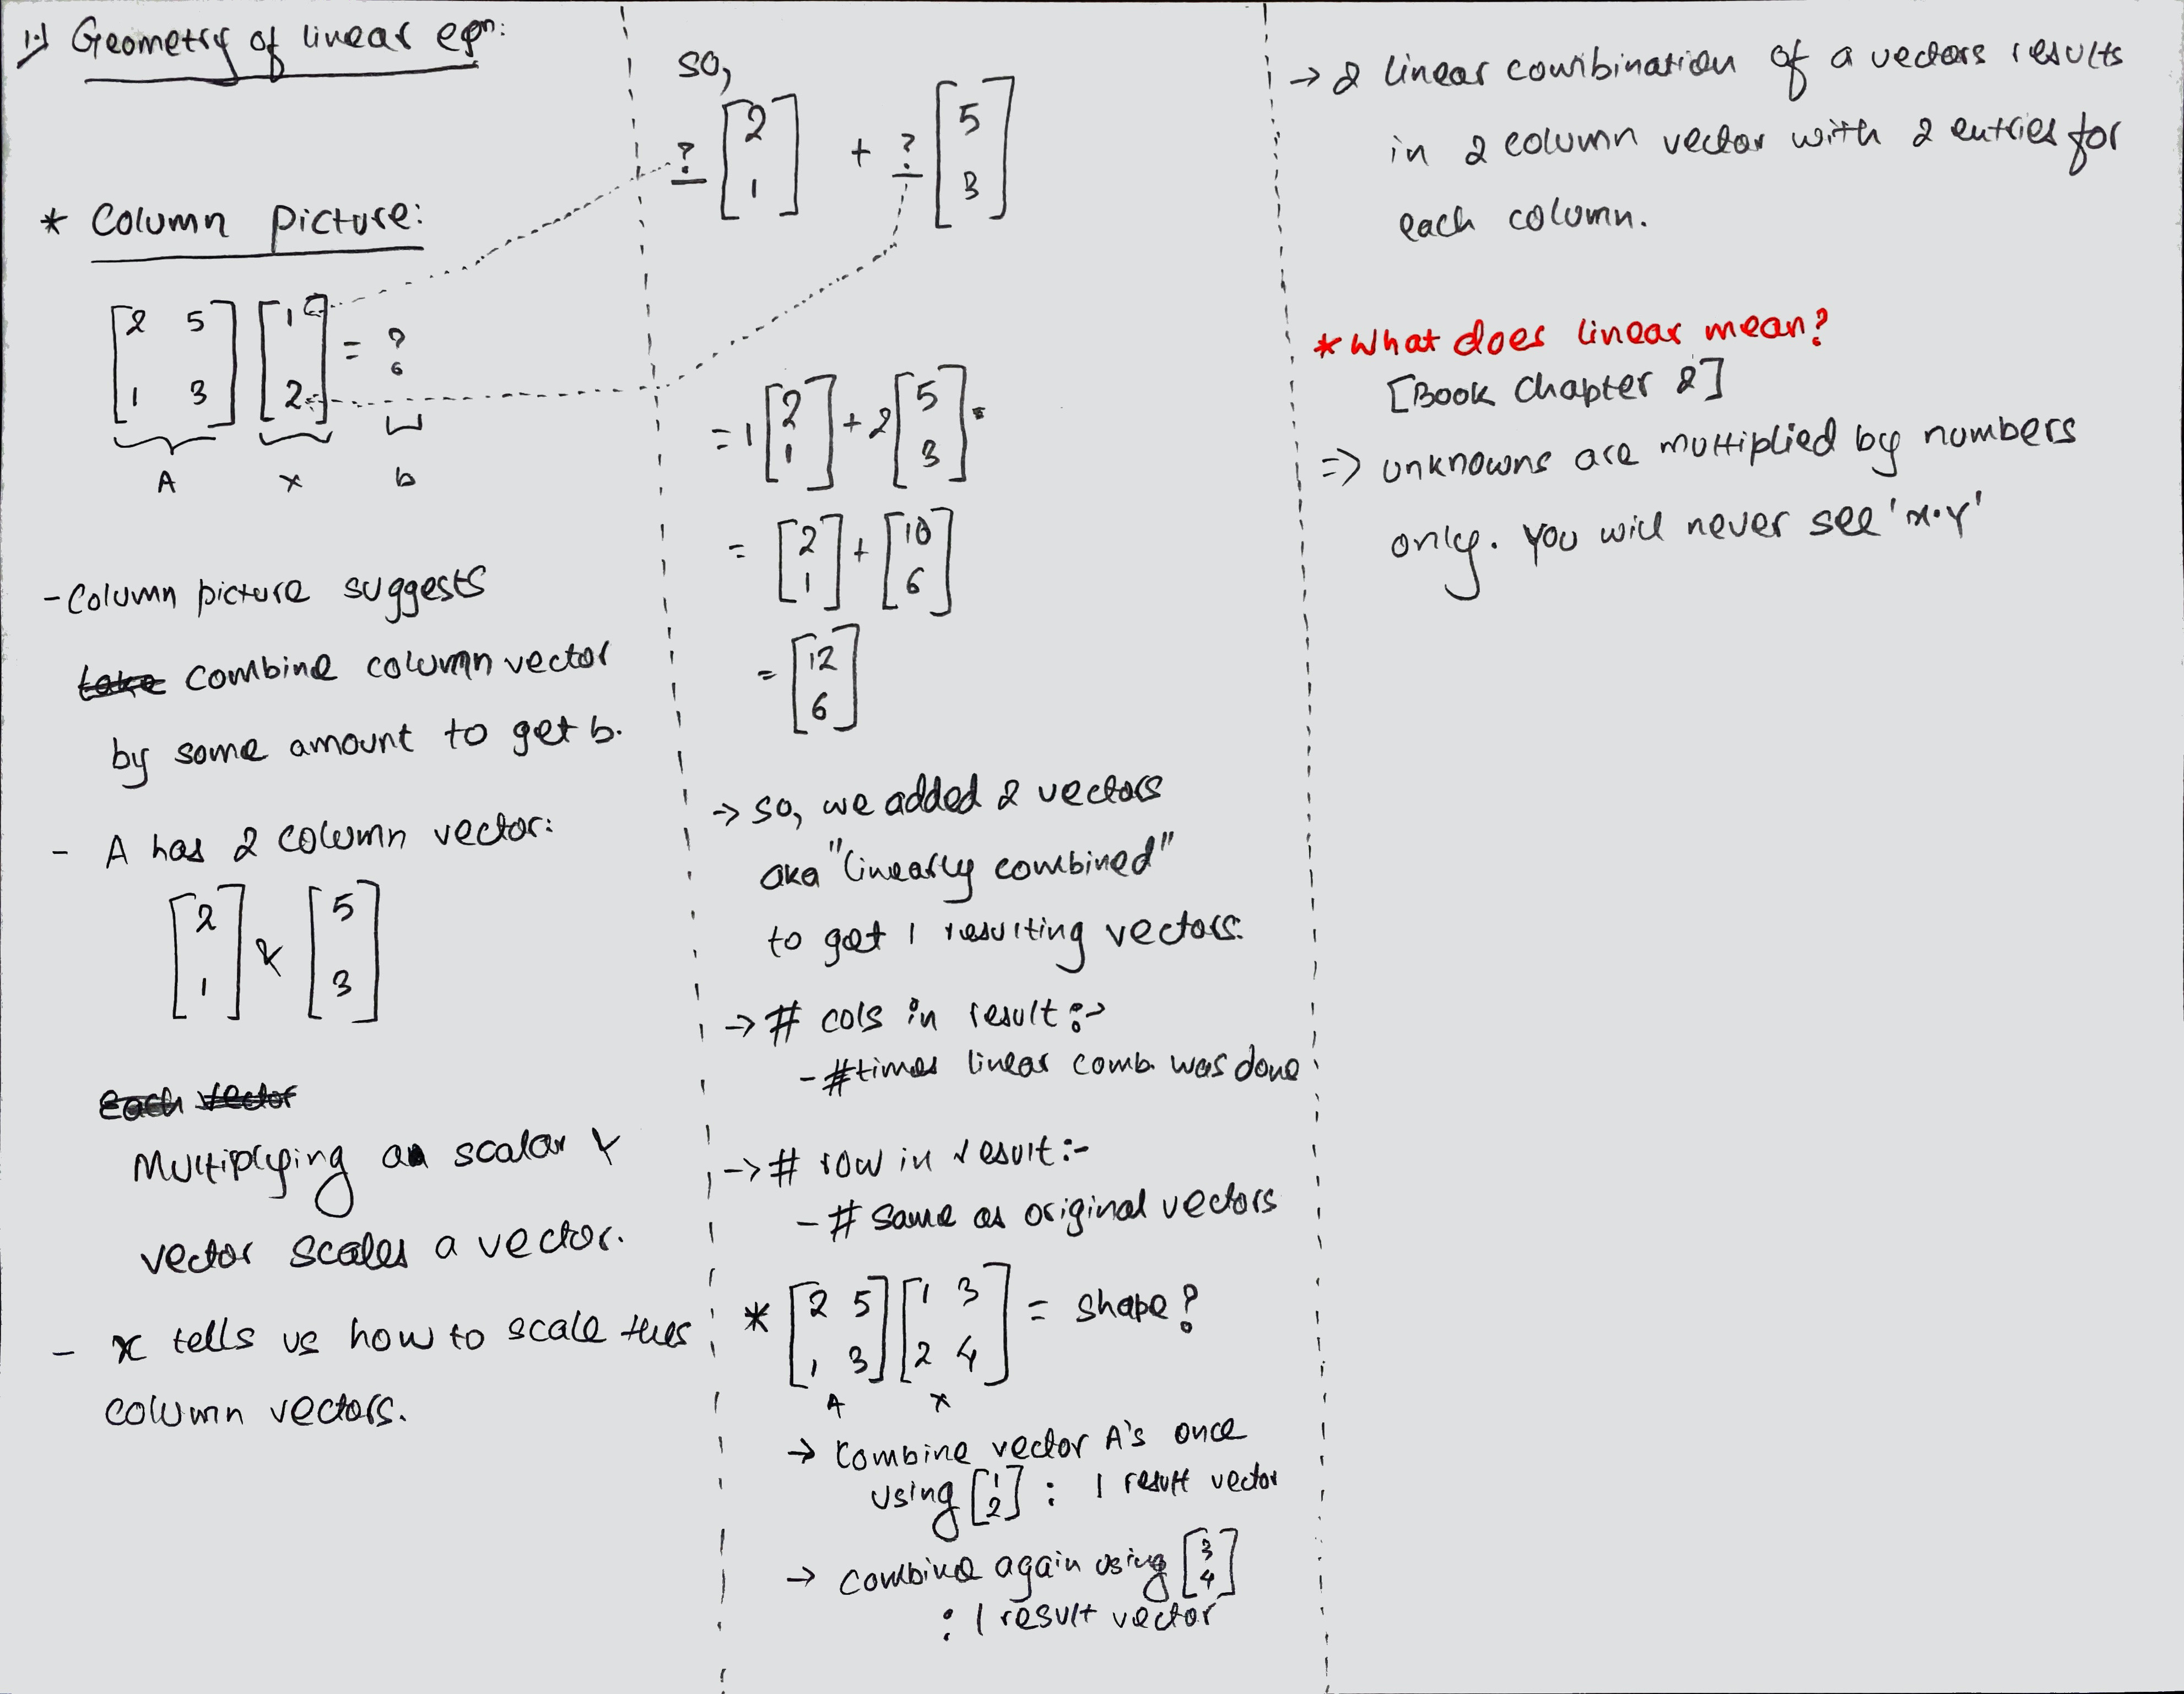 1.) Geometry of linear eqn:
* Column picture:
[2 5
1 3] [1
2] = ?
A x b
- Column picture suggests
take combine column vector
by some amount to get b.
- A has 2 column vector:
[2
1] & [5
3]
Each vector
Multiplying a scalar &
vector scales a vector.
- x tells us how to scale thes
column vectors.
so,
? [2
1] + ? [5
3]
= 1 [2
1] + 2 [5
3]
= [2
1] + [10
6]
= [12
6]
-> so, we added 2 vectors
aka "linearly combined"
to get 1 resulting vectors.
-> # cols in result :->
- #times linear comb. was done
-> # row in result :-
- # same as original vectors
* [2 5
1 3] [1 3
2 4] = shape?
A x
-> Combine vector A's once
using [1
2] : 1 result vector
-> combine again using [3
4]
: 1 result vector
-> 2 linear combination of a vectors results
in 2 column vector with 2 entries for
each column.
* What does linear mean?
[Book Chapter 2]
=> unknowns are multiplied by numbers
only. You will never see 'x·y'